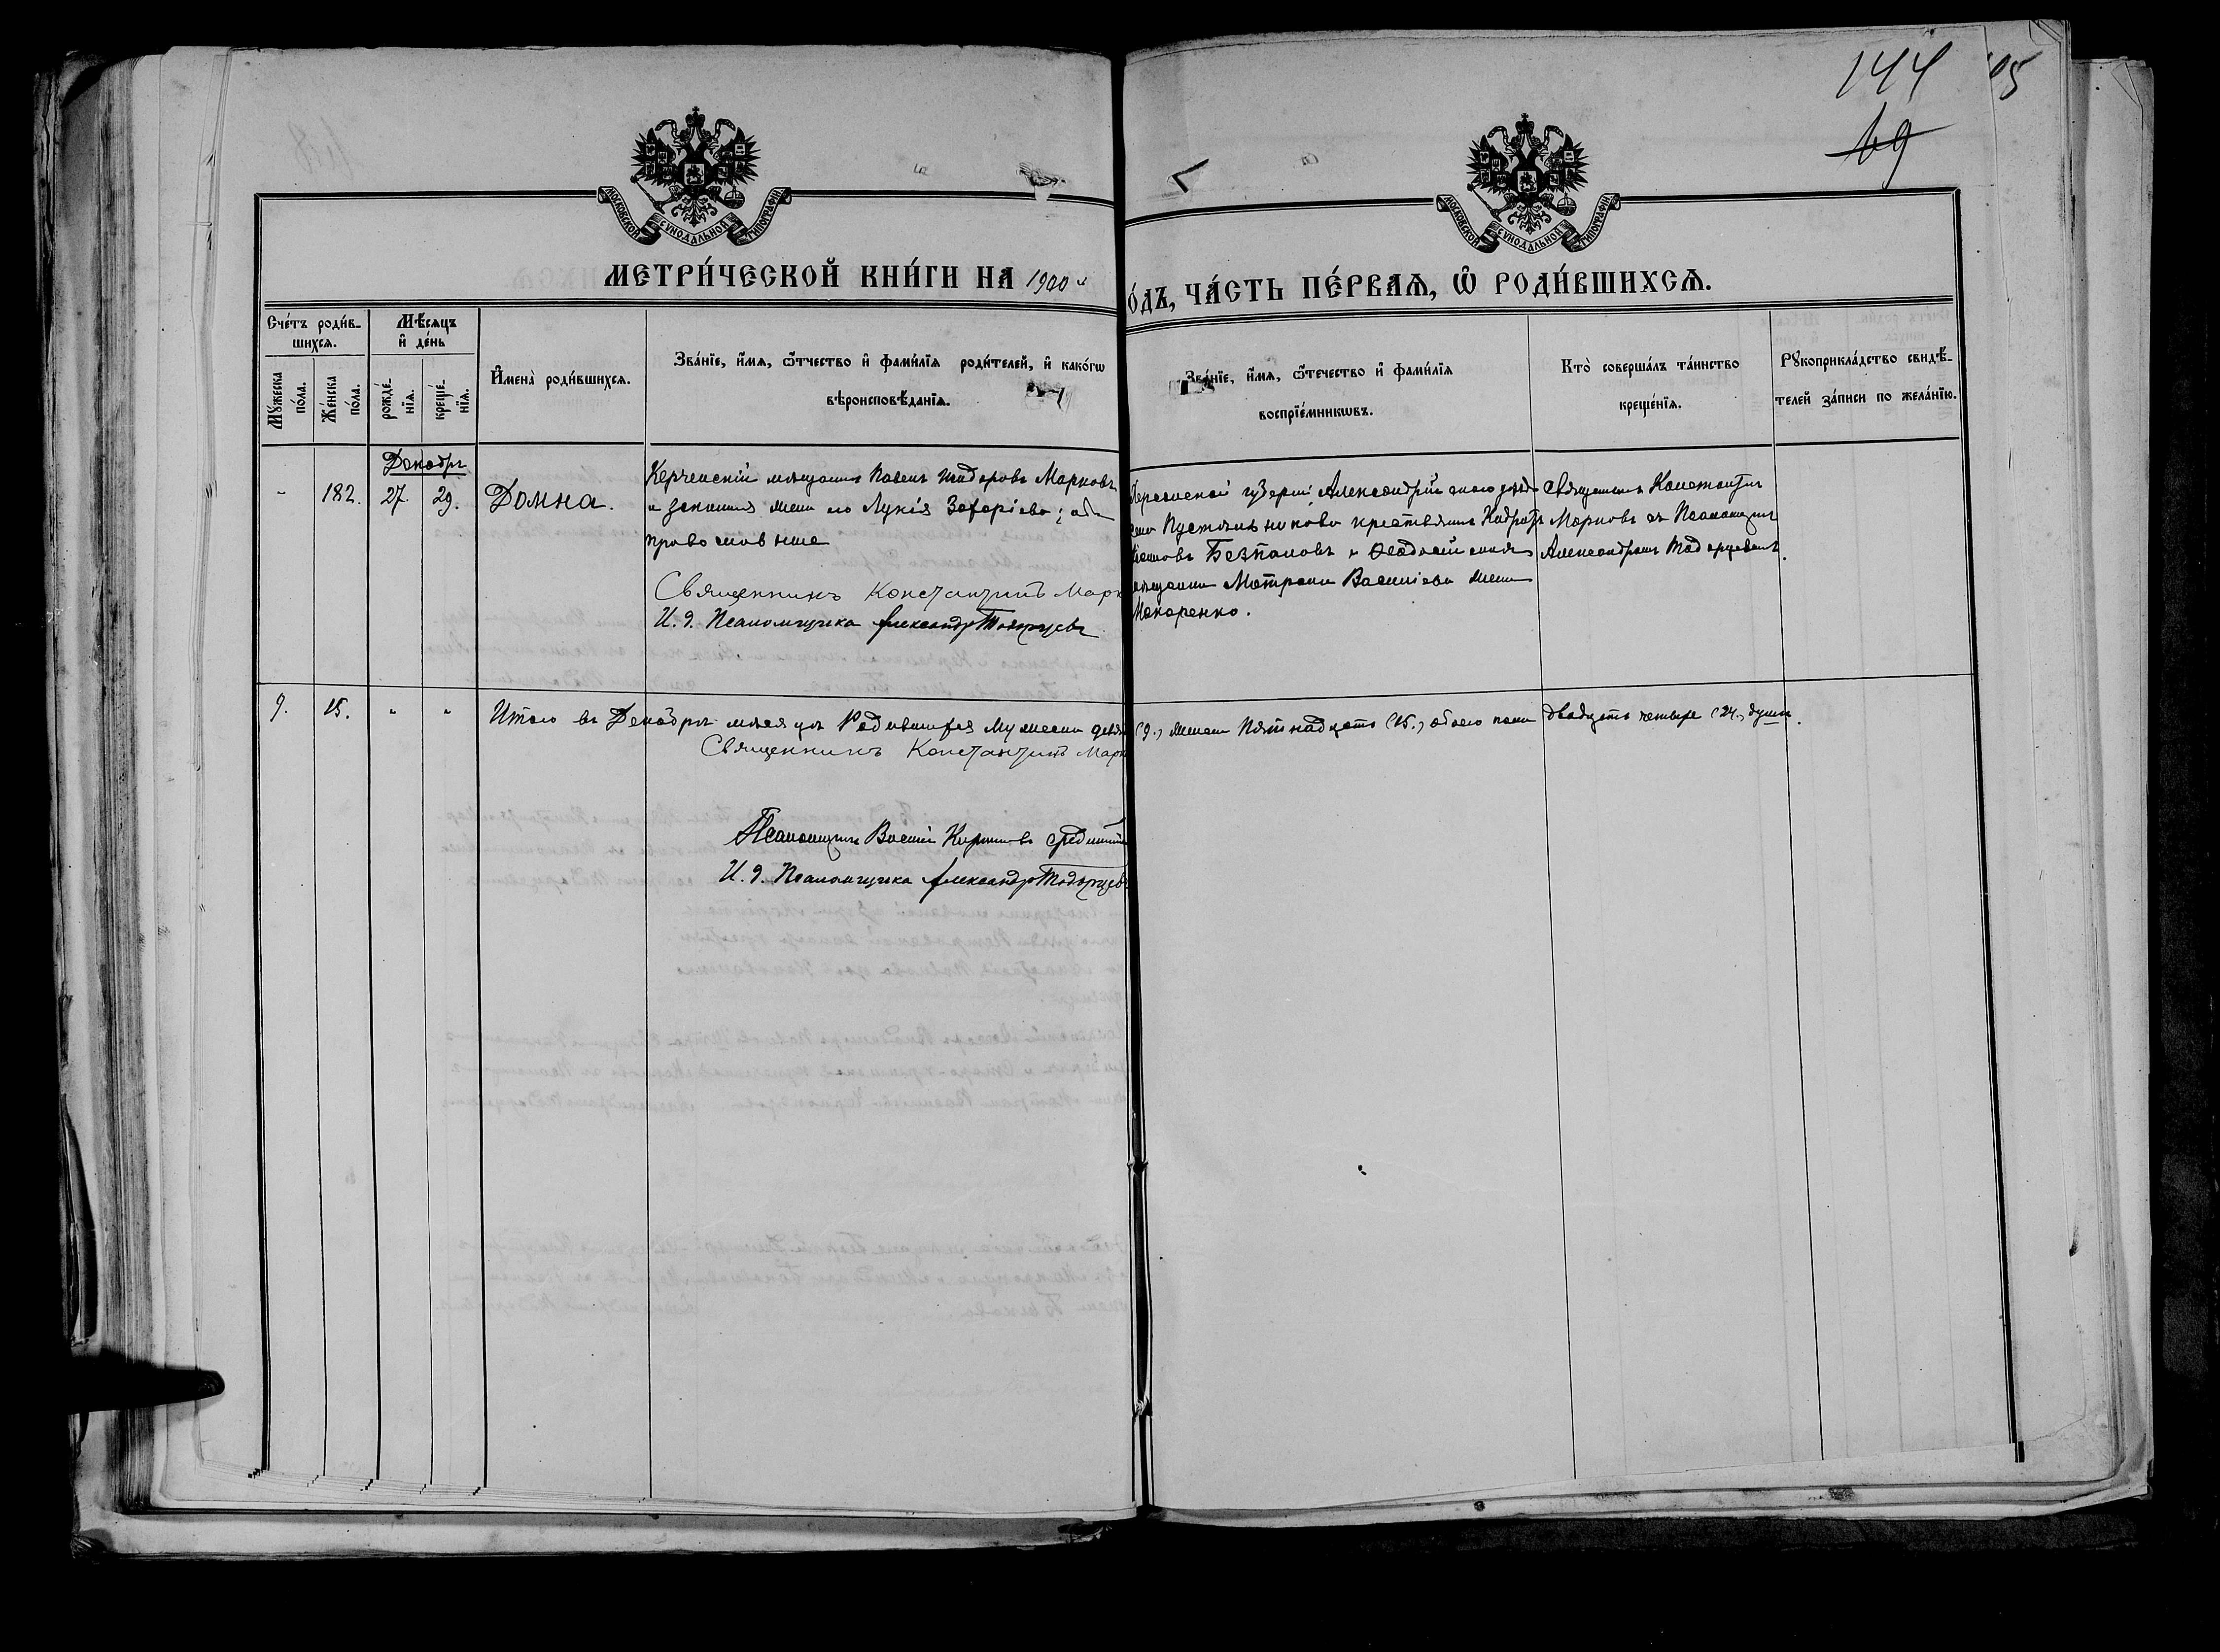 144
69
МОСКОВСКОЙ СУНОДАЛЬНОЙ ТИПОГРАФИИ
МОСКОВСКОЙ СУНОДАЛЬНОЙ ТИПОГРАФИИ
МЕТРИ́ЧЕСКОЙ КНИ́ГИ НА 1900 й
ОДЪ, ЧА́СТЬ ПЕ́РВАѦ, Ѡ РОДИ́ВШИХСѦ.
Счéтъ роди́в-
шихсѧ.
Мꙋ́жеска по́ла.
Же́нска по́ла.
Мѣ́сѧцъ
и҆ де́нь
рожде́-нїѧ.
креще́-нїѧ.
И҆мена̀ роди́вшихсѧ.
Зва́нїе, и҆́мѧ, ѻ҆́тчество и҆ фами́лїѧ роди́телей, и҆ како́гѡ
вѣроисповѣ́данїѧ.
Зва́нїе, и҆́мѧ, ѻ҆́течество и҆ фами́лїѧ
воспрїе́мникѡвъ.
Кто̀ соверша́лъ та́инство
креще́нїѧ.
Рꙋкоприкла́дство свидѣ́-
телей за́писи по жела́нїю.
Декабрь
- 182. 27. 29. Домна.
Керченскій мѣщанинъ Павелъ Исидоровъ Марковъ
и законная жена его Лукія Захаріева; оба
православные
Священникъ Константинъ Марк
И. д. Псаломщика Александр Тодорцевъ
Херсонской губерніи Александрійскаго уѣзда
села крестьянинъ
Безпаловъ и
мѣщанина Матрона Васильева жена
Макаренко.
Священникъ Константинъ
Марковъ съ Псаломщик
Александромъ Тодорцевымъ.
9. 15. " " Итого въ Декабрѣ мѣсяцѣ Родившихся мужеска девят (9.) женска Пятнадцать (15.) обоего пола двадцать четыре (24.) души.
Священникъ Константинъ Марк
Псаломщикъ Василій
И. д. Псаломщика Александр Тодорцевъ